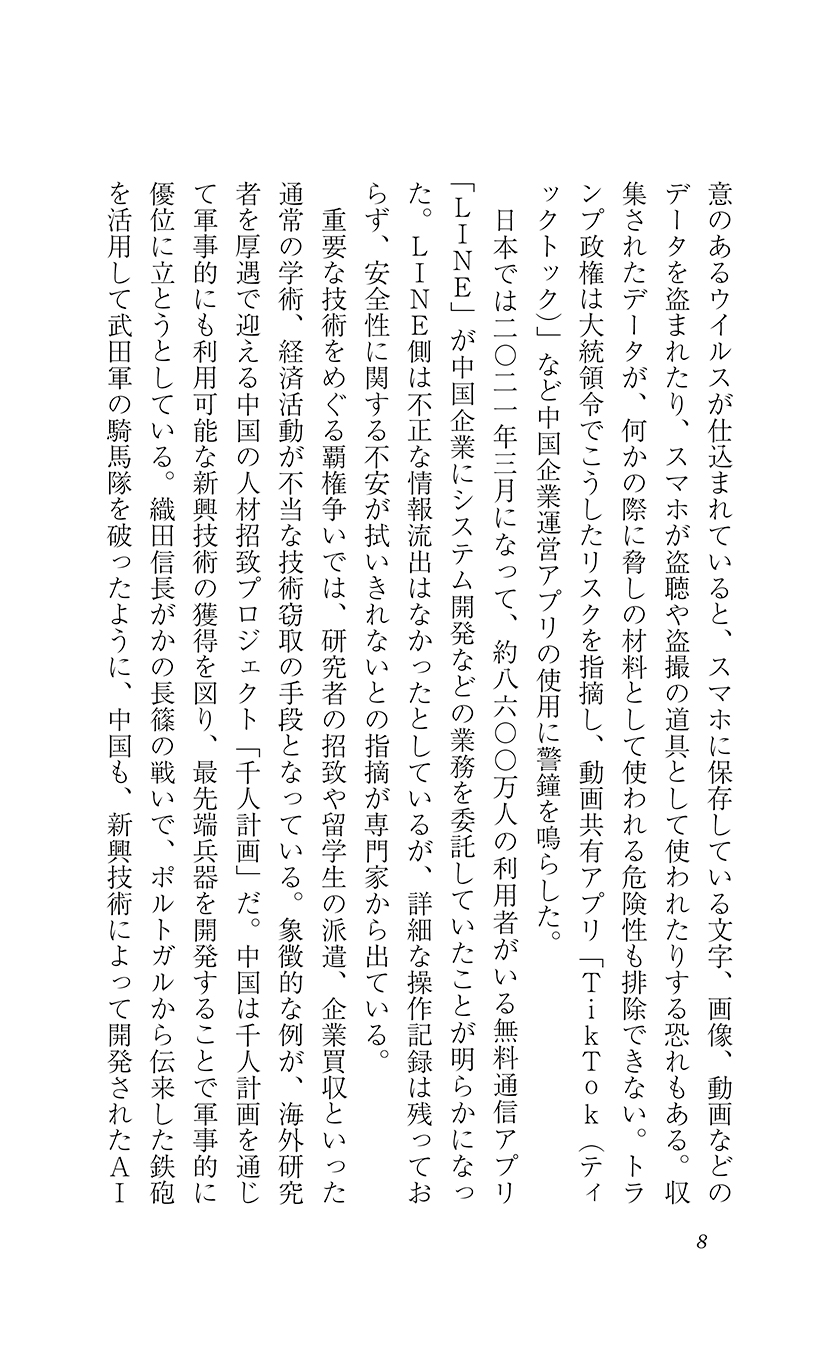 意のあるウイルスが仕込まれていると、スマホに保存している文字、画像、動画などの
データを盗まれたり、スマホが盗聴や盗撮の道具として使われたりする恐れもある。収
集されたデータが、何かの際に脅しの材料として使われる危険性も排除できない。トラ
ンプ政権は大統領令でこうしたリスクを指摘し、動画共有アプリ「ＴｉｋＴｏｋ（ティ
ックトック）」など中国企業運営アプリの使用に警鐘を鳴らした。
　日本では二〇二一年三月になって、約八六〇〇万人の利用者がいる無料通信アプリ
「ＬＩＮＥ」が中国企業にシステム開発などの業務を委託していたことが明らかになっ
た。ＬＩＮＥ側は不正な情報流出はなかったとしているが、詳細な操作記録は残ってお
らず、安全性に関する不安が拭いきれないとの指摘が専門家から出ている。
　重要な技術をめぐる覇権争いでは、研究者の招致や留学生の派遣、企業買収といった
通常の学術、経済活動が不当な技術窃取の手段となっている。象徴的な例が、海外研究
者を厚遇で迎える中国の人材招致プロジェクト「千人計画」だ。中国は千人計画を通じ
て軍事的にも利用可能な新興技術の獲得を図り、最先端兵器を開発することで軍事的に
優位に立とうとしている。織田信長がかの長篠の戦いで、ポルトガルから伝来した鉄砲
を活用して武田軍の騎馬隊を破ったように、中国も、新興技術によって開発されたＡＩ
8